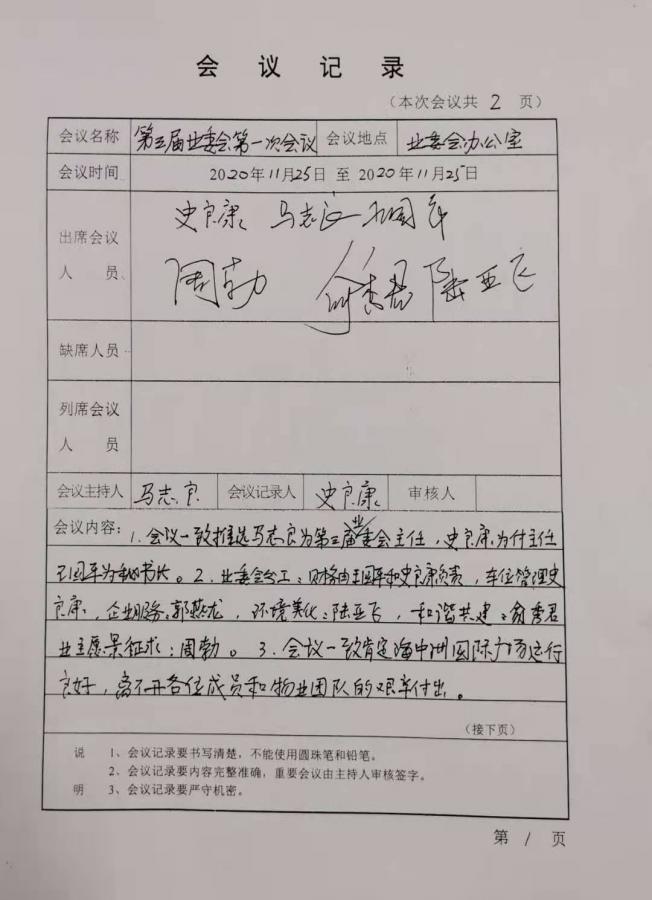 会议记录
（本次会议共 2 页）
会议名称 第三届业委会第一次会议 会议地点 业委会办公室
会议时间 2020年11月25日 至 2020年11月25日
史良康 马志良 王国平
出席会议
人 员 周勃 俞秀君 陆亚飞
缺席人员
列席会议
人 员
会议主持人 马志良 会议记录人 史良康 审核人
会议内容：1.会议一致推选马志良为第三届业委会主任，史良康为付主任
王国平为秘书长。2.业委会分工：财务由王国平和史良康负责，车位管理史
良康，企业服务：郭燕龙，环境美化：陆亚飞，和谐共建：俞秀君
业主愿景征求：周勃。3.会议一致肯定海中洲国际广场运行
良好，离不开各位成员和物业团队的艰辛付出。
（接下页）
说 1、会议记录要书写清楚，不能使用圆珠笔和铅笔。
2、会议记录要内容完整准确，重要会议由主持人审核签字。
明 3、会议记录要严守机密。
第 1 页